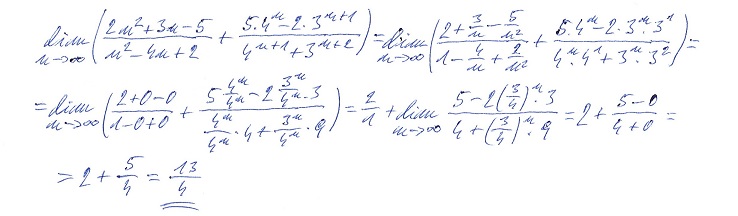 lim n→∞ ( (2n²+3n-5)/(n²-4n+2) + (5·4ⁿ-2·3ⁿ⁺¹)/(4ⁿ⁺¹+3ⁿ⁺²) ) = lim n→∞ ( (2+3/n-5/n²)/(1-4/n+2/n²) + (5·4ⁿ-2·3ⁿ·3¹)/(4ⁿ·4¹+3ⁿ·3²) ) =
= lim n→∞ ( (2+0-0)/(1-0+0) + (5 4ⁿ/4ⁿ-2 3ⁿ/4ⁿ·3)/(4ⁿ/4ⁿ·4+3ⁿ/4ⁿ·9) ) = 2/1 + lim n→∞ (5-2(3/4)ⁿ·3)/(4+(3/4)ⁿ·9) = 2+ (5-0)/(4+0) =
= 2 + 5/4 = 13/4